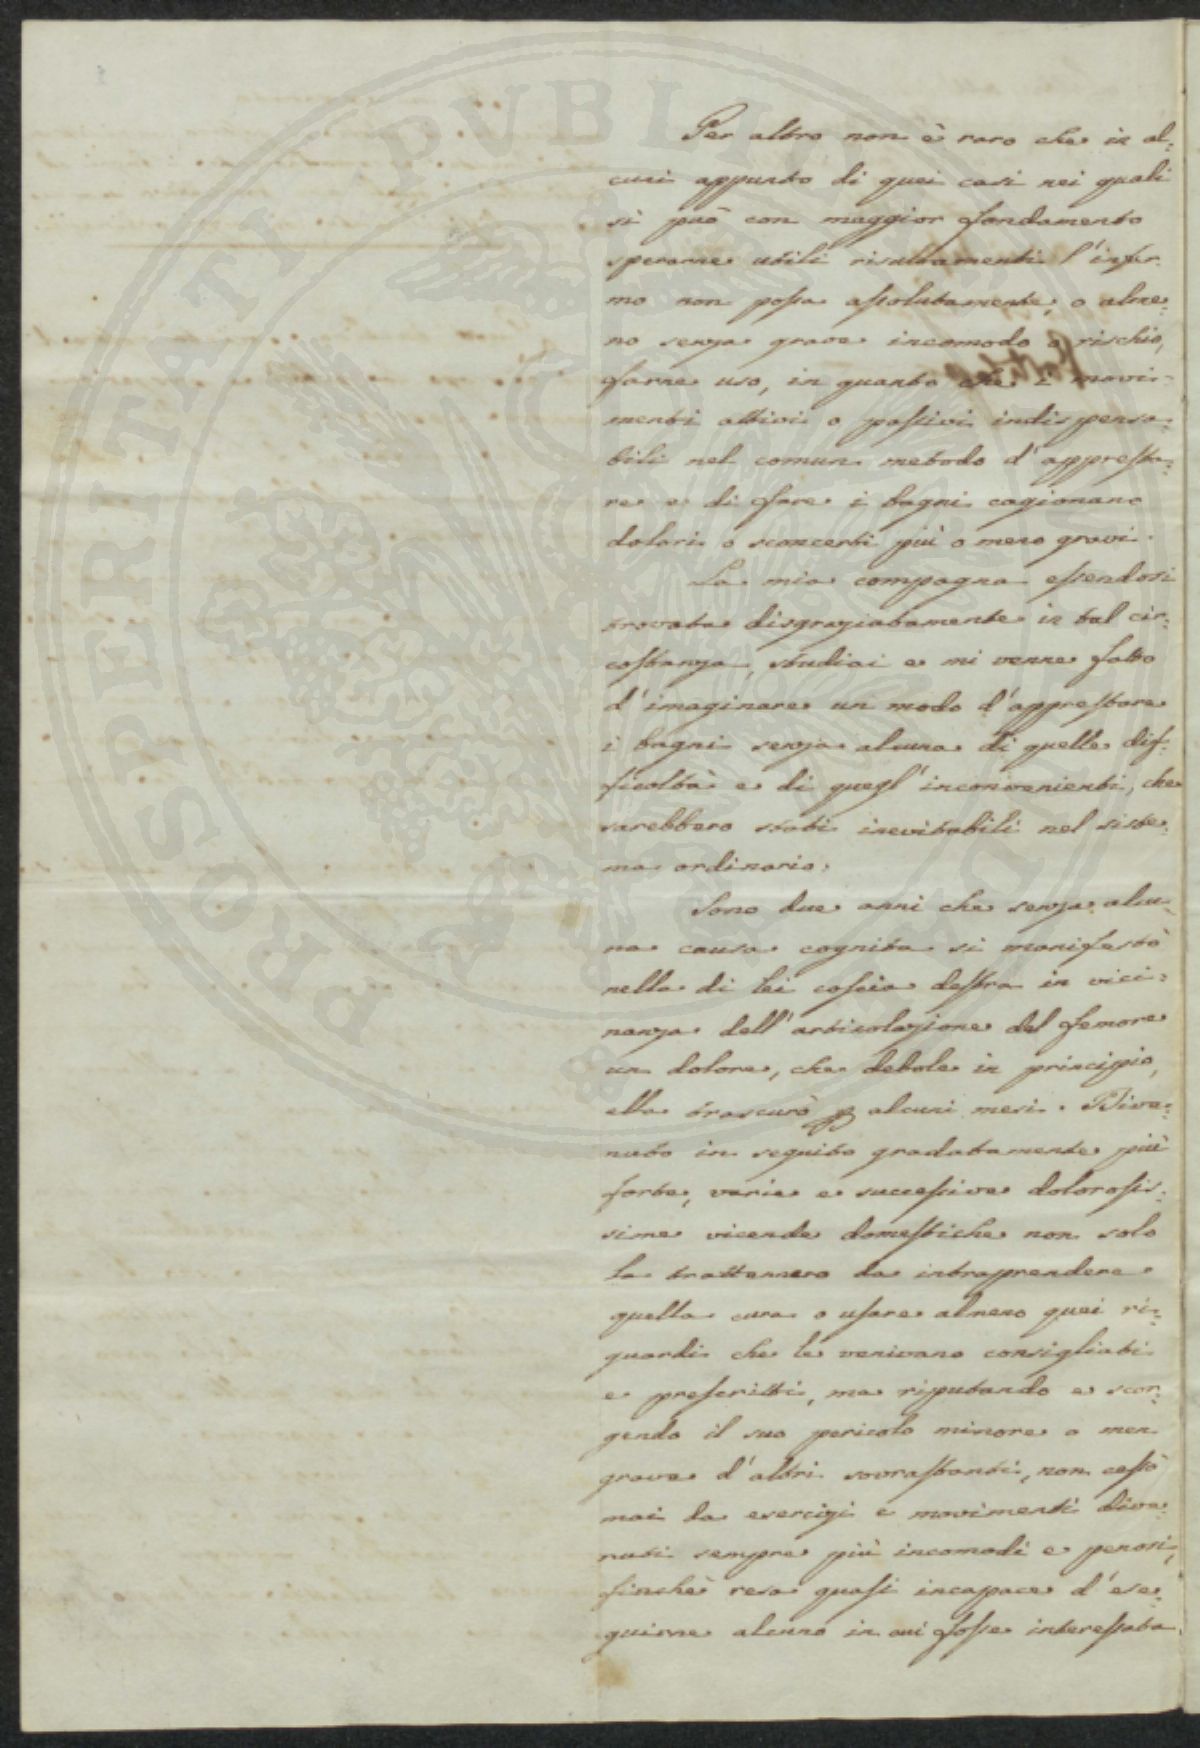 Per altro non è raro che in al-
cuni appunto di quei casi nei quali
si può con maggior fondamento
sperarne utili risultamenti l'infer-
mo non possa assolutamente, o alme-
no senza grave incomodo o rischio,
farne uso, in quanto che i movi-
menti attivi o passivi indispensa-
bili nel comun metodo d'appresta-
re e di fare i bagni cagionano
dolori o sconcerti più o meno gravi.
La mia compagna essendosi
trovata disgraziatamente in tal cir-
costanza, studiai e mi venne fatto
d'imaginare un modo d'apprestare
i bagni senza alcuna di quelle dif-
ficoltà e di quegl'inconvenienti, che
sarebbero stati inevitabili nel siste-
ma ordinario.
Sono due anni che senza alcu-
na causa cognita si manifestò
nella di lei coscia destra in vici-
nanza dell'articolazione del femore
un dolore, che debole in principio,
ella trascurò p alcuni mesi. Dive-
nuto in seguito gradatamente più
forte, varie e successive dolorosis-
sime vicende domestiche non solo
la trattennero da intraprendere
quella cura o usare almeno quei ri-
guardi che le venivano consigliati
e prescritti, ma riputando e scor-
gendo il suo pericolo minore o men
grave d'altri sovrastanti, non cessò
mai da esercizi e movimenti dive-
nuti sempre più incomodi e penosi,
finchè resa quasi incapace d'ese-
guirne alcuno in cui fosse interessata
PROSPERITATI PVBLI